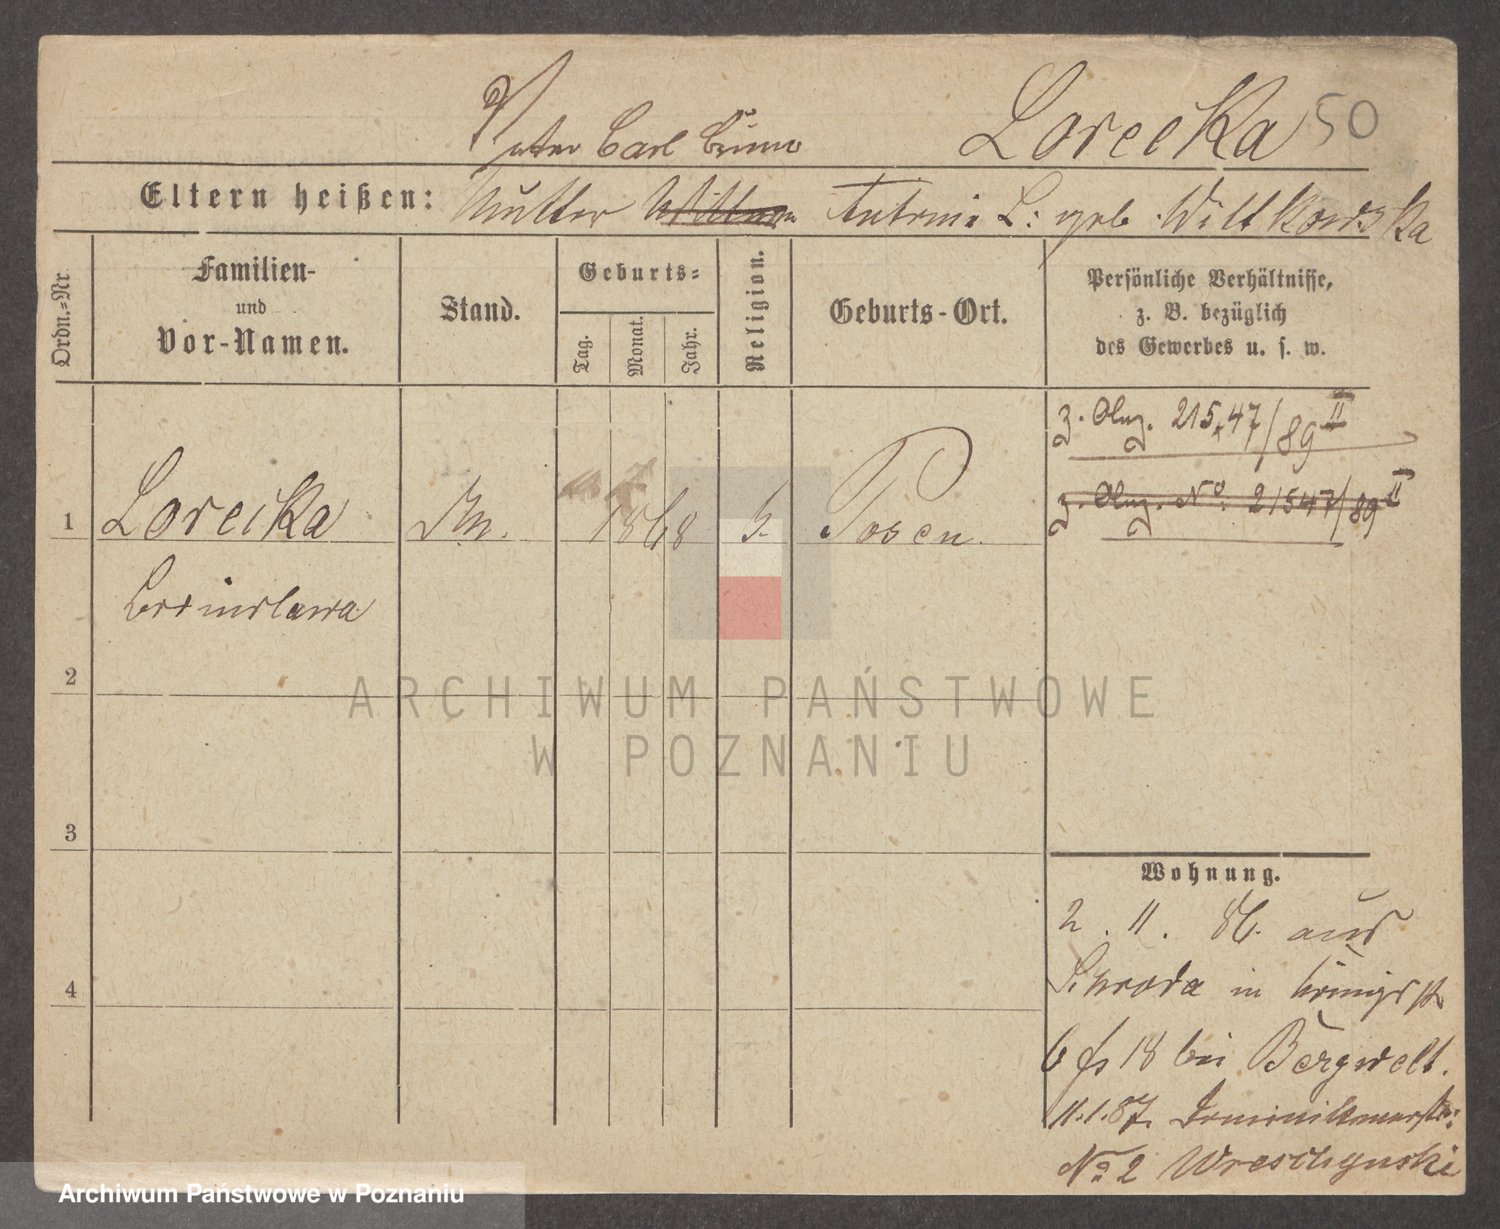 Vater Carl Bruno Lorecka 50
Eltern heißen: Mutter Antonie L: geb. Wittkowska
Ordn.-Nr
Familien-
und
Vor-Namen.
Stand.
Geburts-
Tag.
Monat.
Jahr.
Religion.
Geburts-Ort.
Persönliche Verhältnisse,
z. B. bezüglich
des Gewerbes u. s. w.
z. Abg. 21547/89 II
z. Abg. No. 21547/89 II
1 Lorecka 1868 Posen.
Bronislawa
2
3
4
Wohnung.
2. 11. 86. aus
Schroda in Königsstr
6 18 bei Bergwelt.
11.1.87. Dominikanerstr:
No 2 Wreschynski
ARCHIWUM PAŃSTWOWE
W POZNANIU
Archiwum Państwowe w Poznaniu